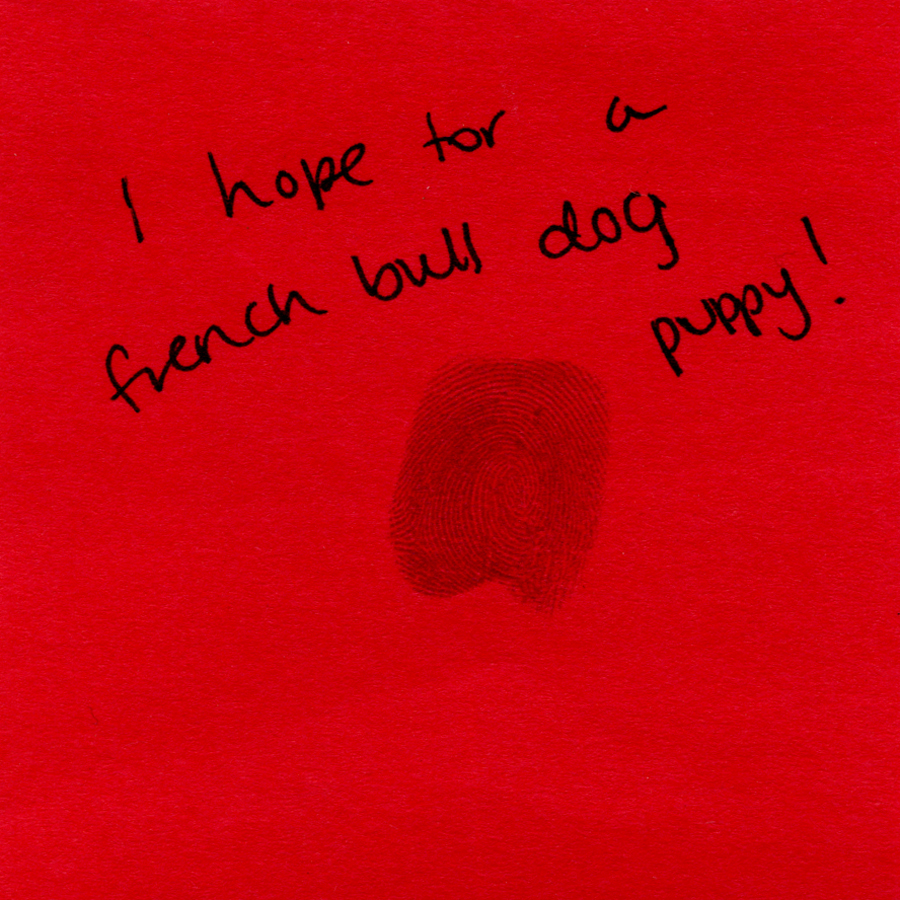 I hope for a
french bull dog
puppy!